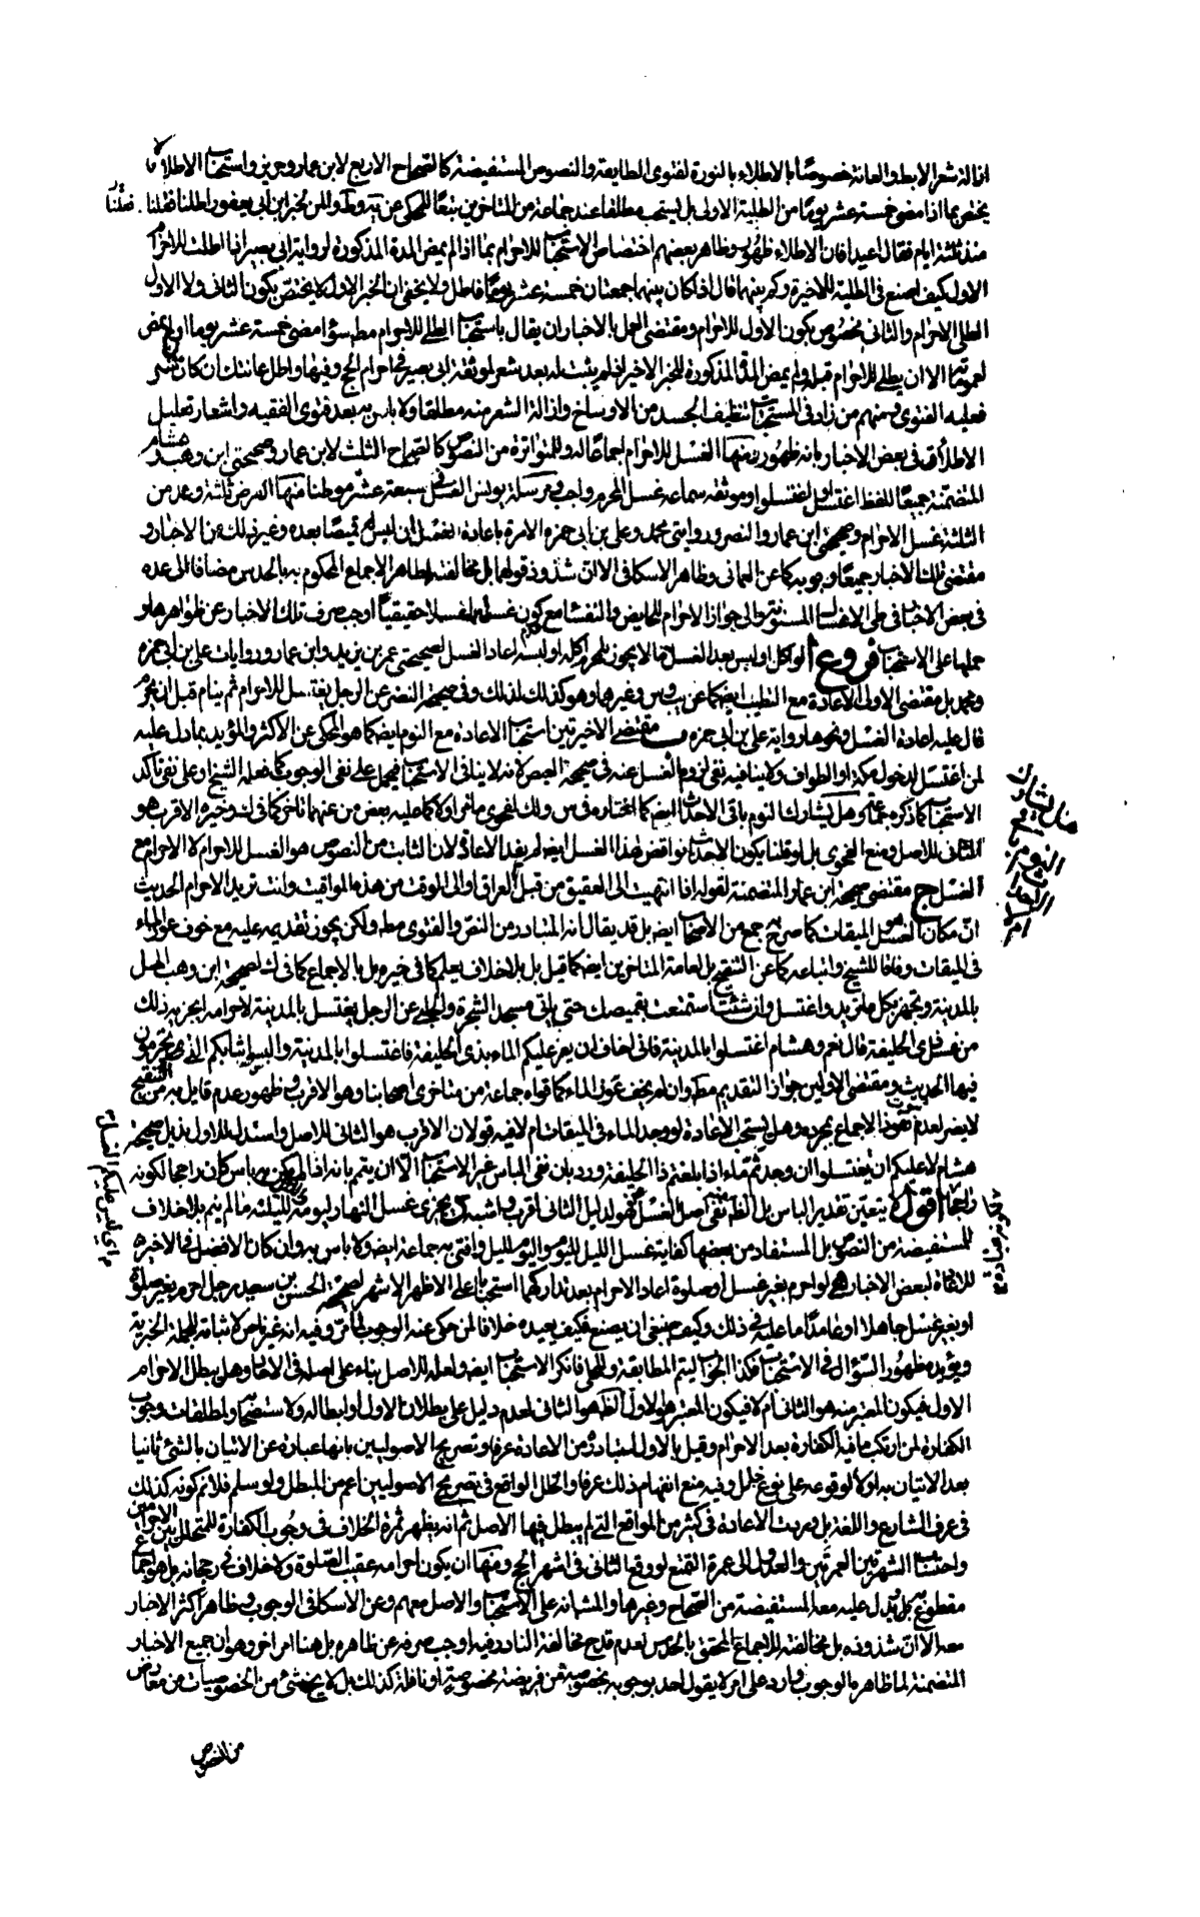 ازالة شعر الابط والعانة خصوصًا بالاطلاء بالنورة لفتوى الطايفة والنصوص المستفيضة كالصحاح الاربع لابن عمار وحريز واستحباب الاطلاء لا
يختص بما اذا مضى خمسة عشر يومًا من الطلية الاولى بل يستحب مطلقا عند جماعة من المتاخرين تبعًا للمحكى عن ية وط والمن لخبر ابن ابى يعفور اطلنا فقلنا
منذ ثلثة ايام فقال اعيدا فان الاطلاء طهور وظاهر بعضهم اختصاص الاستحباب للاحرام بما اذا لم يمض المدة المذكورة لرواية ابى بصير اذا اطليت للاحرام
الاول كيف اصنع فى الطلية الاخيرة وكم بينهما قال اذا كان بينهما جمعتان خمسة عشر يومًا فاطل ولا يخفى ان الخبر الاول لا يختص بكون الثانى ولا الاول
الطلى للاحرام والثانى مخصوص بكون الاول للاحرام ومقتضى العمل بالاخبار ان يقال باستحباب الطلى للاحرام مط سواء مضى خمسة عشر يوما او لم يمض
الا ان يطلى للاحرام قبله ولم يمض المدة المذكورة للخبر الاخير اذا لم يثبت له بعد شعر لموثقة ابى بصير فى احرام الحج وفيها واطل عانتك ان كان لك شعر
فعليه الفتوى ومنهم من زاد فى المستحبات تنظيف الجسد من الاوساخ وازالة الشعر منه مطلقا ولا باس به بعد فتوى الفقيه واشعار تعليل
الاطلاء فى بعض الاخبار بانه طهور ومنها الغسل للاحرام اجماعًا له وللمتواترة من النصوص كالصحاح الثلث لابن عمار وصحيحتى ابن وهب وهشام
المتضمنة جميعًا للفظ اغتسل او اغتسلوا وموثقة سماعة غسل المحرم واجب ومرسلة يونس الغسل فى سبعة عشر موطنا منها الفرض ثلثة وعد من
الثلثة غسل الاحرام وصحيحتى ابن عمار والنضر وروايتى محمد وعلى بن ابى حمزة الامرة باعادة الغسل لمن لبس قميصًا بعده وغير ذلك من الاخبار و
مقتضى تلك الاخبار جميعًا وجوبه كما عن العمانى وظاهر الاسكافى الا ان شذوذ قولهما بل مخالفته لظاهر الاجماع المحكوم به بالحدس مضافا الى عده
فى بعض الاخبار فى طى الاغسال المسنونة والى جواز الاحرام للحايض والنفساء مع كون غسلهما غسلا حقيقيًا اوجب صرف تلك الاخبار عن ظواهرها و
حملها على الاستحباب فروع ا لو اكل او لبس بعد الغسل ما لا يجوز للمحرم اكله او لبسه اعاد الغسل لصحيحتى عمر بن يزيد وابن عمار وروايات على بن ابى حمزة
ومحمد بل مقتضى الاولى الاعادة مع التطيب ايضا كما عن يب وس وغيرهما وهو كذلك لذلك وفى صحيحة النضر عن الرجل يغتسل للاحرام ثم ينام قبل ان يحرم
قال عليه اعادة الغسل ونحوها رواية على بن ابى حمزة ب مقتضى الاخيرتين استحباب الاعادة مع النوم ايضا كما هو المحكى عن الاكثر والمؤيد بما دل عليه
لمن اغتسل لدخول مكة او الطواف ولا ينافيه نفى لزوم الغسل عنه فى صحيحة العيص لانه لا ينافى الاستحباب فيحمل على نفى الوجوب كما فعله الشيخ او على نفى تاكد
الاستحباب كما ذكره جماعة وهل يشارك النوم باقى الاحداث ايضا كما اختاره فى س ولك لفحوى ما مر او لا كما عليه بعض من عنهما تاخر كما فى ك وخيره الاقرب هو
الثانى للاصل ومنع الفحوى بل لو قلنا بكون الاحداث نواقض لهذا الغسل ايضا لم يفد الاعادة لان الثابت من النصوص هو الغسل للاحرام لا الاحرام مع
الغسل ج مقتضى صحيحة ابن عمار المتضمنة لقوله اذا انتهيت الى العقيق من قبل العراق او الى الوقت من هذه المواقيت وانت تريد الاحرام الحديث
ان مكان الغسل هو الميقات كما صرح به جمع من الاصحاب ايضا بل قد يقال انه المتبادر من النص والفتوى مطه ولكن يجوز تقديمه عليه مع خوف عوز الماء
فى الميقات وفاقا للشيخ واتباعه كما عن التنقيح بل لعامة المتاخرين ايضا كما قيل بل بلا خلاف يعلم كما فى خيره بل بالاجماع كما فى ك لصحيحة ابن وهب اطل
بالمدينة وتجهز بكل ما تريد واغتسل وان شئت استمتعت بقميصك حتى ياتى مسجد الشجرة والحلبى عن الرجل يغتسل بالمدينة لاحرامه ايجزيه ذلك
من غسل ذى الحليفة قال نعم وهشام اغتسلوا بالمدينة فانى اخاف ان يعز عليكم الماء بذى الحليفة فاغتسلوا بالمدينة والبسوا ثيابكم التى تحرمون
فيها الحديث ومقتضى الاوليين جواز التقديم مط وان لم يخف عوز الماء كما قواه جماعة من متاخرى اصحابنا وهو الاقرب وظهور عدم قايل به من التنقيح
لا يضر لعدم ثبوت الاجماع بمجرده وهل يستحب الاعادة لو وجد الماء فى الميقات ام لا فيه قولان الاقرب هو الثانى للاصل واستدل للاول بذيل صحيحة
هشام لا عليكم ان تغتسلوا ان وجدتم ماء اذا بلغتم ذا الحليفة ورد بان نفى الباس غير الاستحباب الا ان يتم بانه اذا لم يكن به باس كان راجحا لكونه
راجحًا اقول لا يتعين تقدير الباس بل الظ نفى اصل الغسل فهو لدليل الثانى اقرب واشبه د يجزى غسل النهار ليومه والليل لليلته ما لم ينم بلا خلاف
للمستفيضة من النصوص بل المستفاد من بعضها كفاية غسل الليل لليوم واليوم لليل وافتى به جماعة ايضا ولا باس به وان كان الافضل فى الاخيرة
للاعادة لبعض الاخبار ه لو احرم بغير غسل او صلوة اعاد الاحرام بعد تداركهما استحبابًا على الاظهر الاشهر لصحيحة الحسن بن سعيد رجل احرم بغير صلوة
او بغير غسل جاهلا او عامدًا ما عليه فى ذلك وكيف ينبغى ان يصنع فكتب يعيده خلافا لمن حكى عنه الوجوب لما مر وفيه انه غير ناص لاثباته للجملة الخبرية
ويؤيده ظهور السؤال فى الاستحباب فكذا الجواب ليتم المطابقة وللحلى فانكر الاستحباب ايضا ولعله للاصل بناء على اصله فى الاحاد وهل يبطل الاحرام
الاول فيكون المعتبر منه هو الثانى ام لا فيكون المعتبر هو الاول الظ هو الثانى لعدم دليل على بطلان الاول او ابطاله ولاستصحاب واطلقات وجوب
الكفارة لمن ارتكب ما فيه الكفارة بعد الاحرام وقيل بالاول لمتبادر من الاعادة عرفا وتصريح الاصوليين بانها عبارة عن الاتيان بالشئ ثانيا
بعد الاتيان به اولا لوقوعه على نوع خلل وفيه منع انفهام ذلك عرفا والخلل الواقع فى تصريح الاصوليين اعم من المبطل ولو سلم فلا نم كونه كذلك
فى عرف الشارع واللغة بل وردت الاعادة فى كثير من المواقع التى لم يبطل فيها الاصل ثم انه يظهر ثمرة الخلاف فى وجوب الكفارة للمتخلل بين الاحرامين
واحتساب الشهر بين العمرتين والعدول الى عمرة التمتع لو وقع الثانى فى اشهر الحج ومنها ان يكون احرامه عقيب الصلوة ولا خلاف فى رجحانه بل هو اجماعا
مقطوع بل يدل عليه معه المستفيضة من الصحاح وغيرها والمشهور انه على الاستحباب والاصل معهم وعن الاسكافى الوجوب وظاهر اكثر الاخبار
معه الا ان شذوذه بل مخالفته للاجماع المحقق بالحدس لعدم قدح مخالفة النادر فيه اوجب صرفه عن ظاهره بل هنا امر اخر وهو ان جميع الاخبار
المتضمنة لما ظاهره الوجوب وارد على امر لا يقول احد بوجوبه بخصوصه من فريضة مخصوصة او نافلة كذلك بل لا يخ شئ من الخصوصيات من معارض
من النصوص
هل يشارك
النوم باقى
الاحداث
ام لا